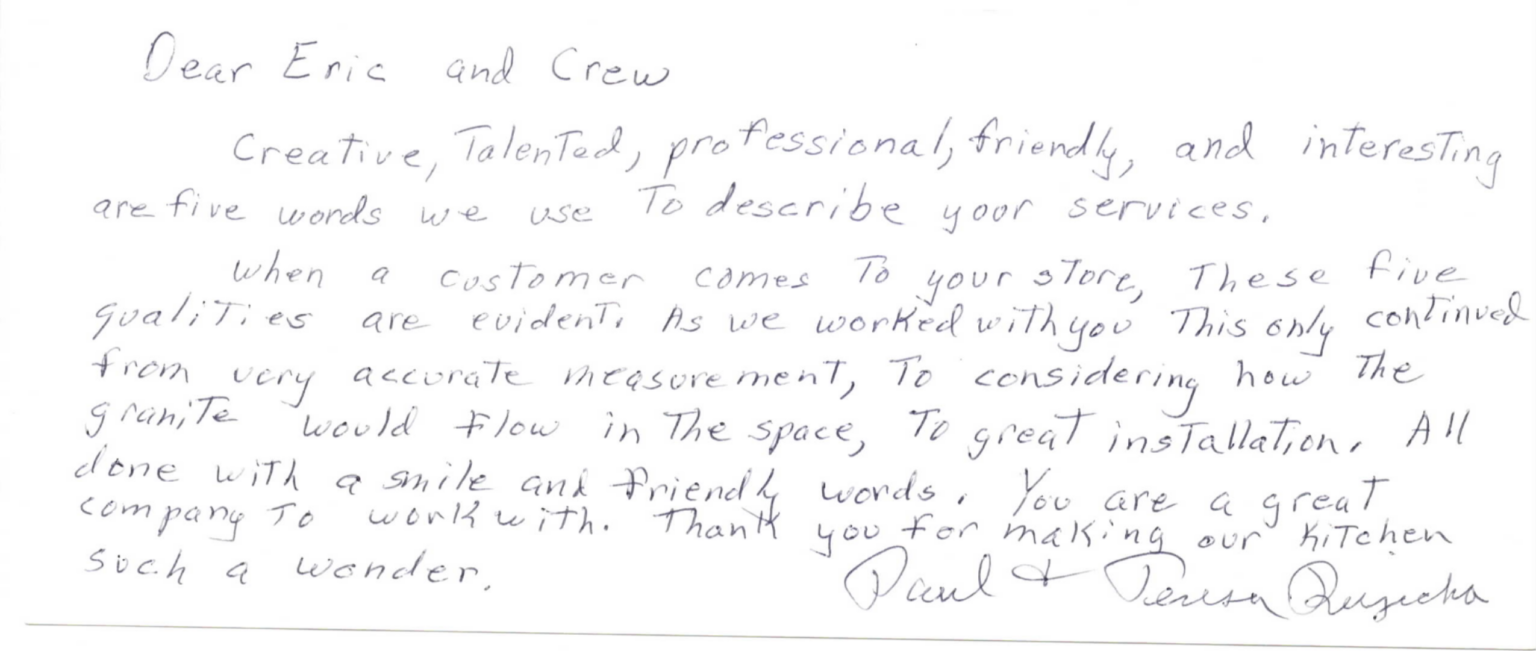 Dear Eric and Crew
Creative, Talented, professional, friendly, and interesting
are five words we use To describe your services.
When a customer comes To your store, These five
qualities are evident. As we worked with you This only continued
from very accurate measurement, To considering how The
granite would flow in The space, To great installation. All
done with a smile and friendly words. You are a great
company To work with. Thank you for making our kitchen
such a wonder.
Paul & Teresa Ruzicka